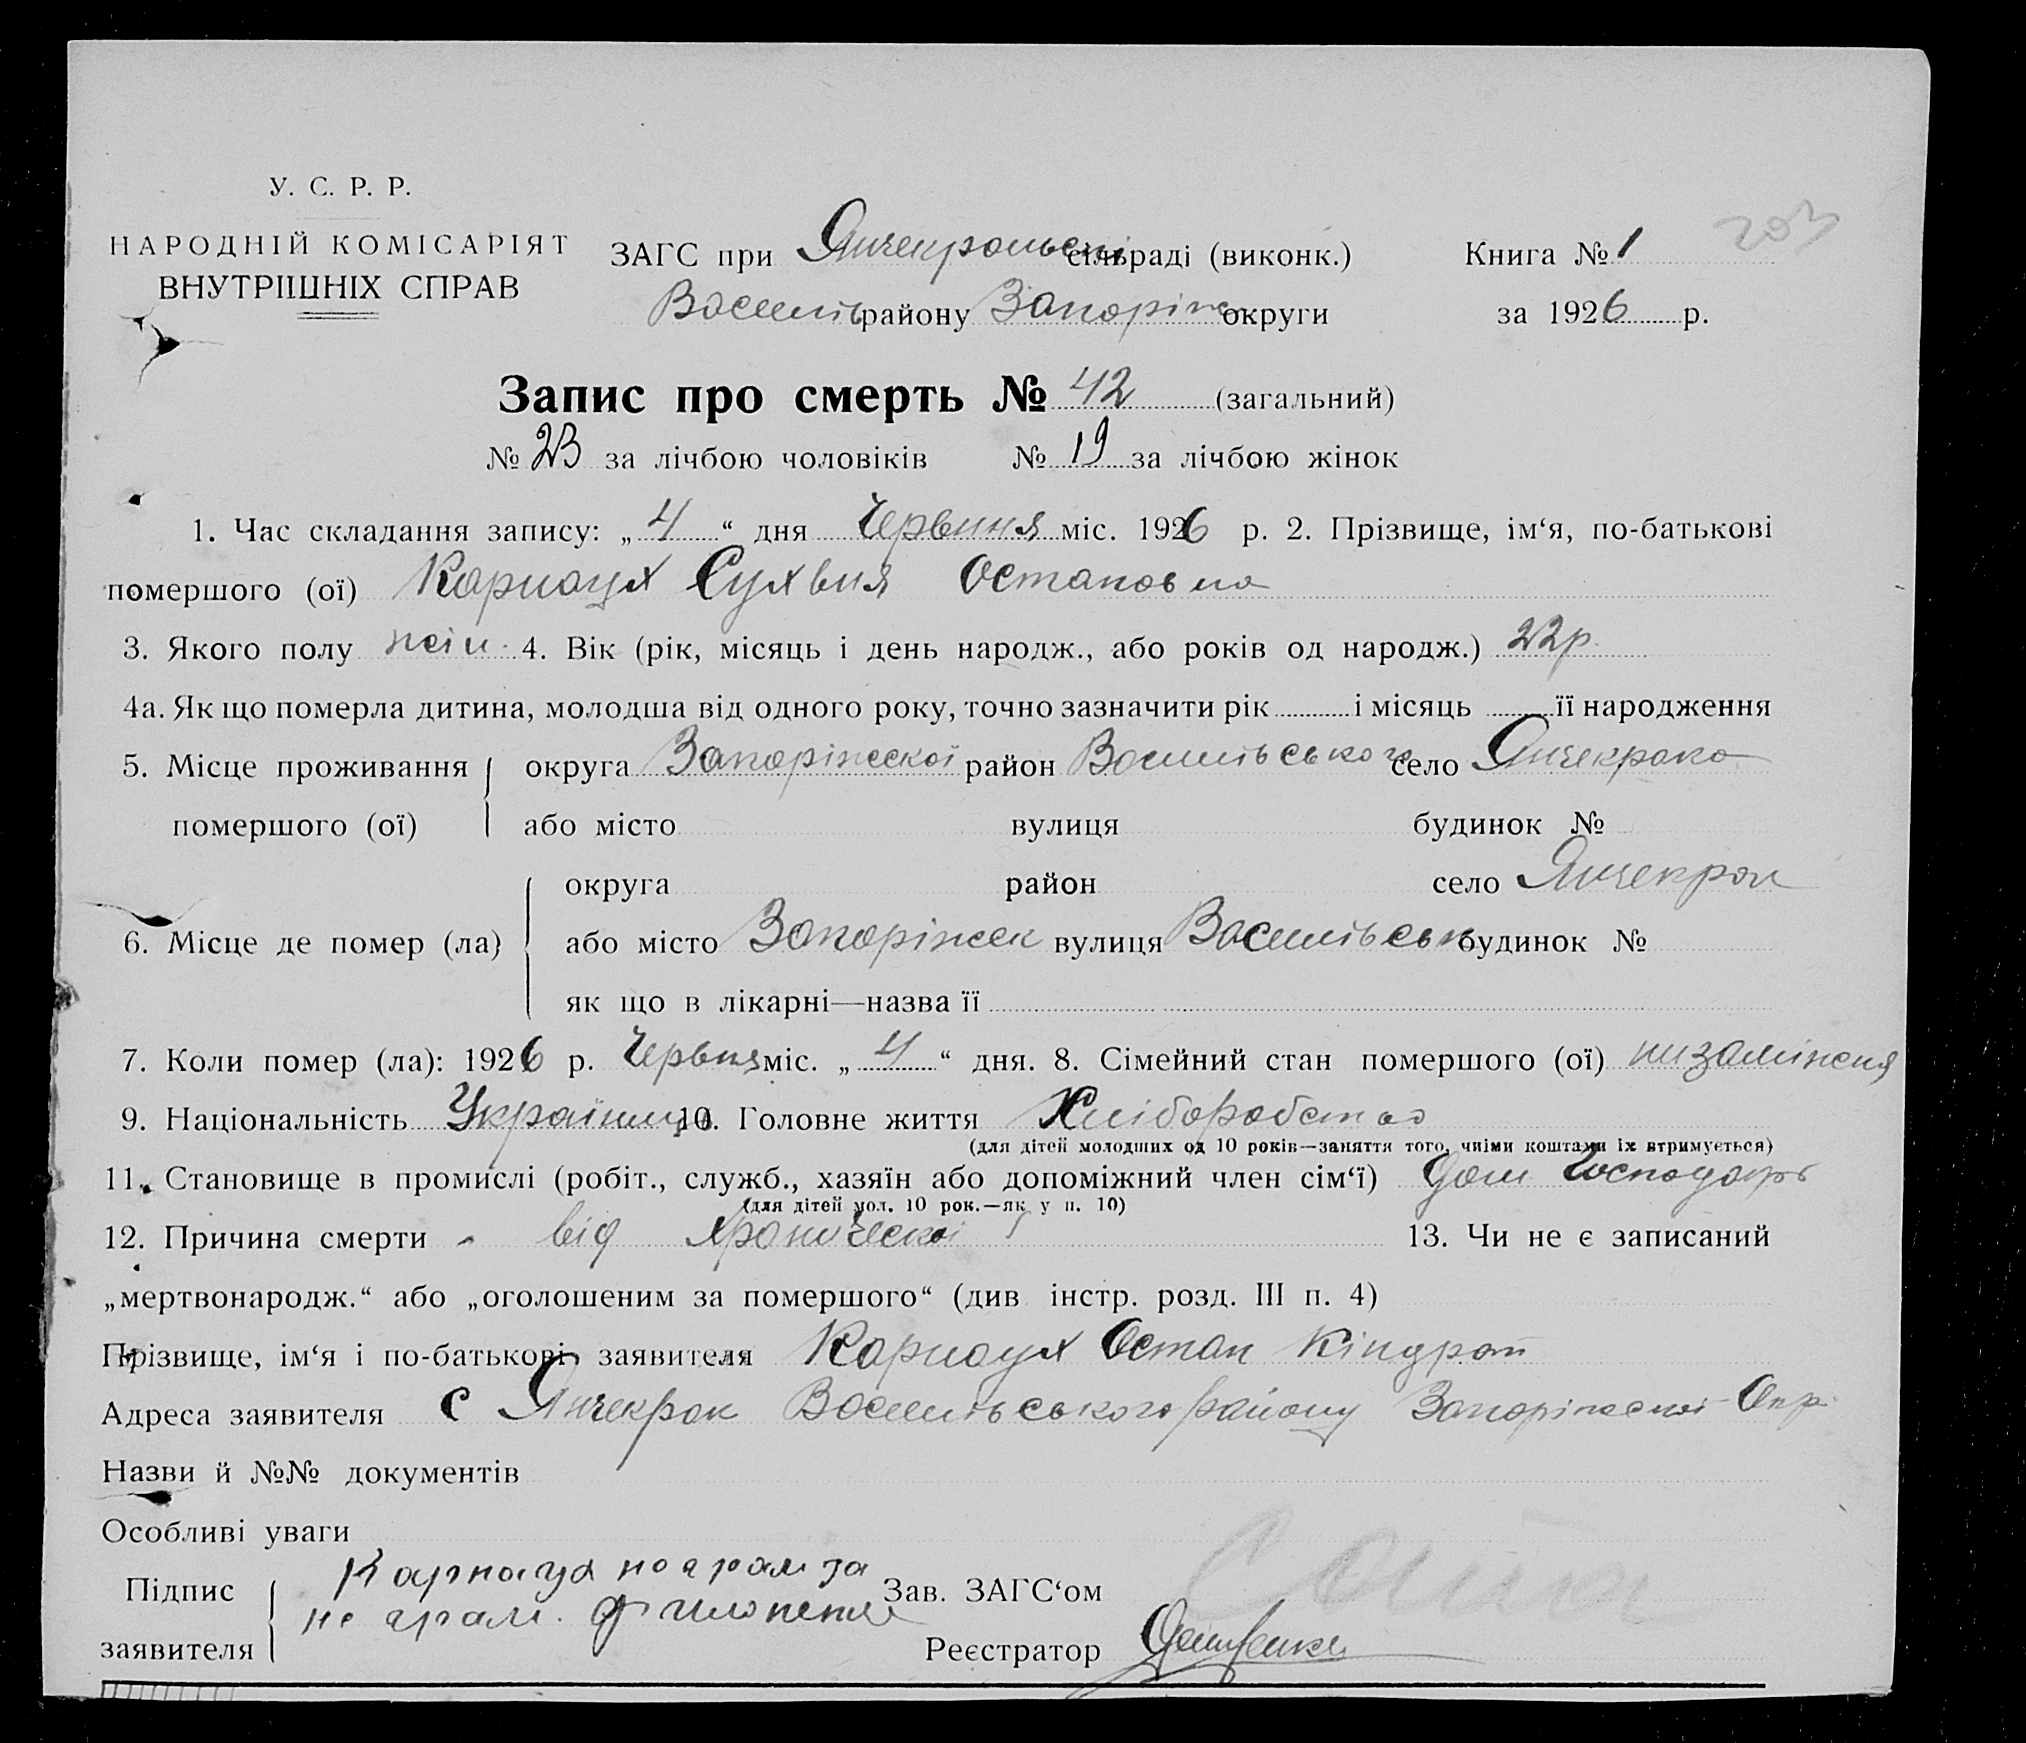 203
У. С. Р. Р.
НАРОДНІЙ КОМІСАРІЯТ
ВНУТРІШНІХ СПРАВ
ЗАГС при Янчекрокські сільраді (виконк.) Книга № 1
Василів району Запоріж округи за 1926 р.
Запис про смерть № 42 (загальний)
№ 23 за лічбою чоловіків № 19 за лічбою жінок
1. Час складання запису: „ 4 “ дня Червння міс. 1926 р. 2. Прізвище, ім‘я, по-батькові
помершого (ої) Карнаух Сухвия Остаповна
3. Якого полу жін. 4. Вік (рік, місяць і день народж., або років од народж.) 22 р.
4а. Як що померла дитина, молодша від одного року, точно зазначити рік і місяць її народження
5. Місце проживання округа Запоріжскої район Василівського село Янчекрака
помершого (ої) або місто вулиця будинок №
округа район село Янчекрак
6. Місце де помер (ла) або місто Запоріжск вулиця Василівськ будинок №
як що в лікарні—назва її
7. Коли помер (ла): 1926 р. Червня міс. „ 4 “ дня. 8. Сімейний стан помершого (ої) низаміжня
9. Національність Українца 10. Головне життя Хліборобство
(для дітей молодших од 10 років—заняття того, чиїми коштами їх втримується)
11. Становище в промислі (робіт., служб., хазяїн або допоміжний член сім‘ї) Дом Господарь
(для дітей мол. 10 рок.—як у п. 10)
12. Причина смерти від хроническої 13. Чи не є записаний
„мертвонародж.“ або „оголошеним за помершого“ (див. інстр. розд. III п. 4)
Прізвище, ім‘я і по-батькові заявителя Карнаух Остап Кіндрат
Адреса заявителя с Янчекрак Василівського району Запоріжскої Окр.
Назви й №№ документів
Особливі уваги
Підпис Карнаух неграм за
неграм. Зав. ЗАГС‘ом
заявителя Реєстратор